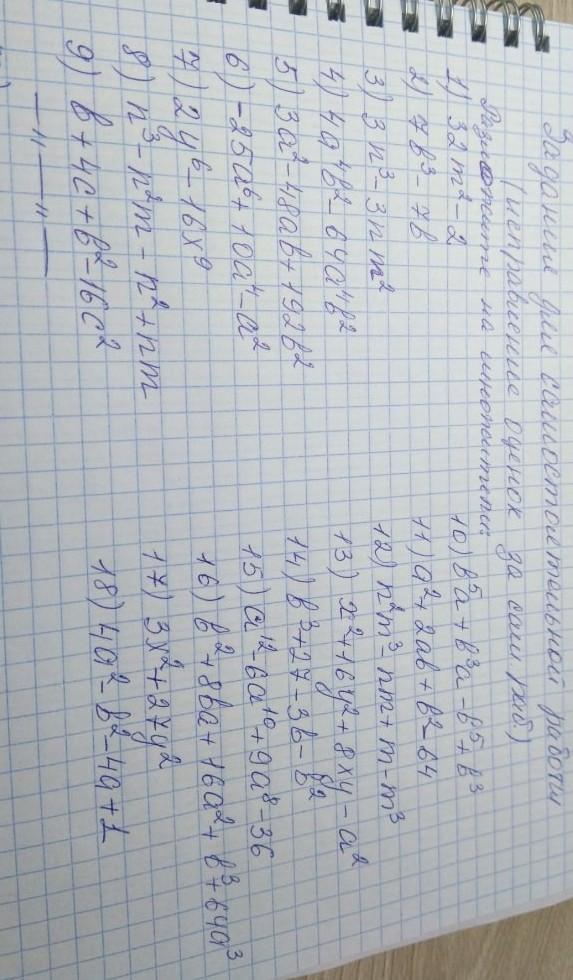 Задание для самостоятельной работы
(исправление оценок за сам. раб)
Разложите на множители:
1) 32m² - 2
2) 7b³ - 7b
3) 3n³ - 3nm²
4) 4a⁴b² - 64a⁴b²
5) 3a² - 48ab + 192b²
6) -25a⁶ + 10a⁴ - a²
7) 2y⁶ - 16x⁹
8) n³ - n²m - n² + nm
9) b + 4c + b² - 16c²
— " — " —
10) b⁵a + b³a - b⁵ + b³
11) a² + 2ab + b² - 64
12) n²m³ - nm + m - m³
13) x² + 16y² + 8xy - a²
14) b³ + 27 - 3b - b²
15) a¹² - 6a¹⁰ + 9a⁸ - 36
16) b² + 8ba + 16a² + b³ + 64a³
17) 3x² + 27y²
18) 4a² - b² - 4a + 1